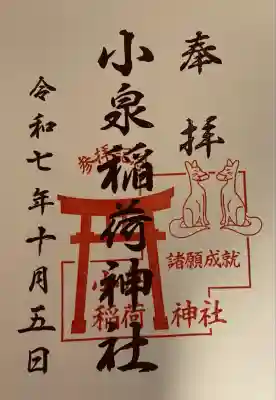 奉拝
小泉稲荷神社
令和七年十月五日
諸願成就
稲荷
神社